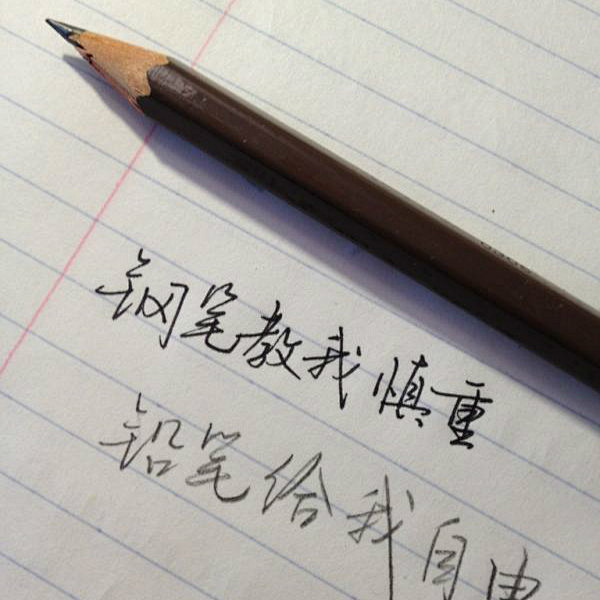 钢笔教我慎重
铅笔给我自由